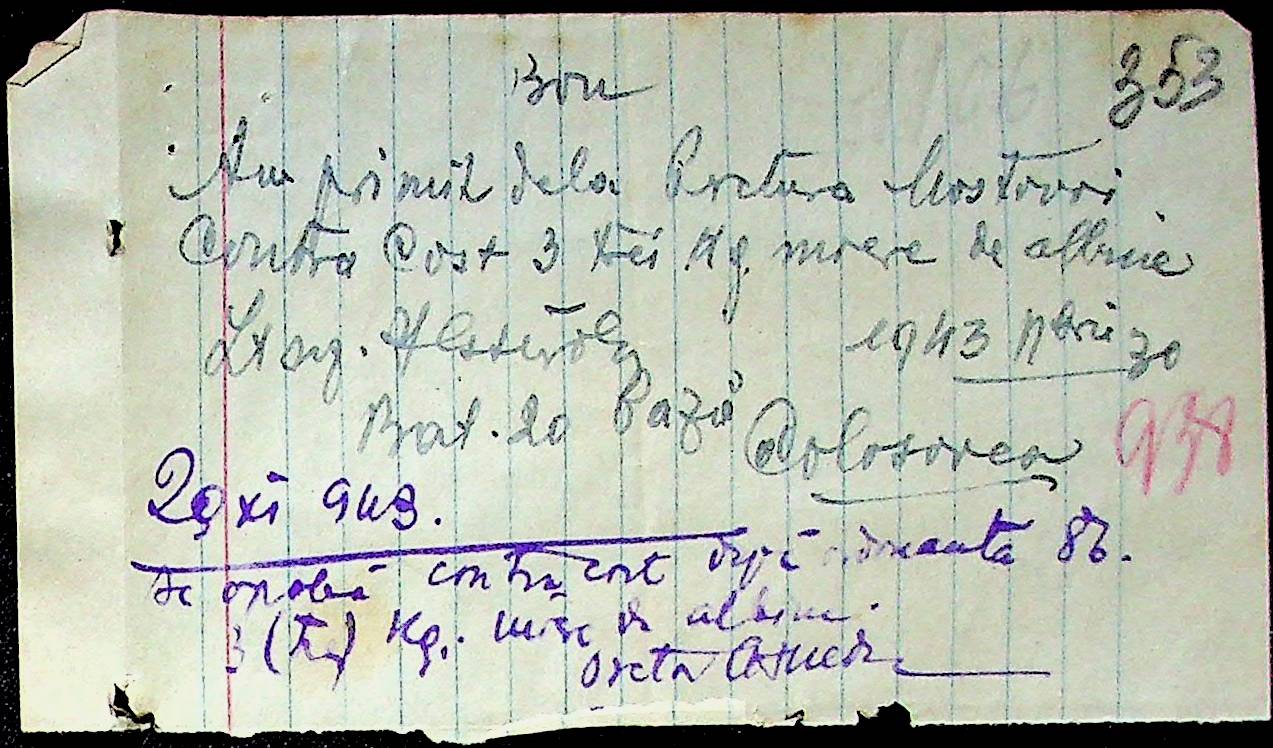 Bon
353
Am primit dela Pretura Mostovoi
Contra Cost 3 trei Kg miere de albine
1943 Nbrie 30
Bat. 20 Bază
938
29 XI 943.
Se aprobă contra cost după 86.
3 (trei) Kg. miere de albine.